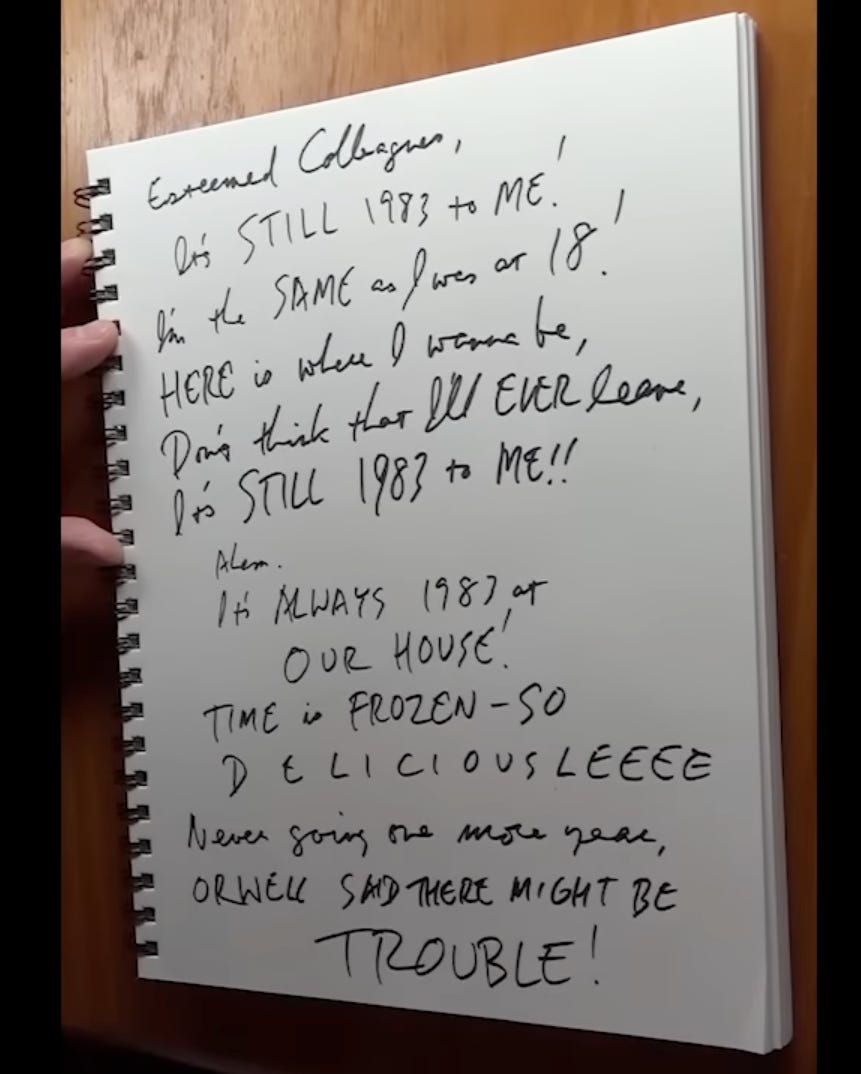 Esteemed Colleagues,
It's STILL 1983 to ME!
I'm the SAME as I was at 18!
HERE is where I wanna be,
Don't think that I'll EVER leave,
It's STILL 1983 to ME!!
Ahem.
It's ALWAYS 1983 at
OUR HOUSE!
TIME is FROZEN - SO
DELICIOUSLEEEE
Never going one more year,
ORWELL SAID THERE MIGHT BE
TROUBLE!